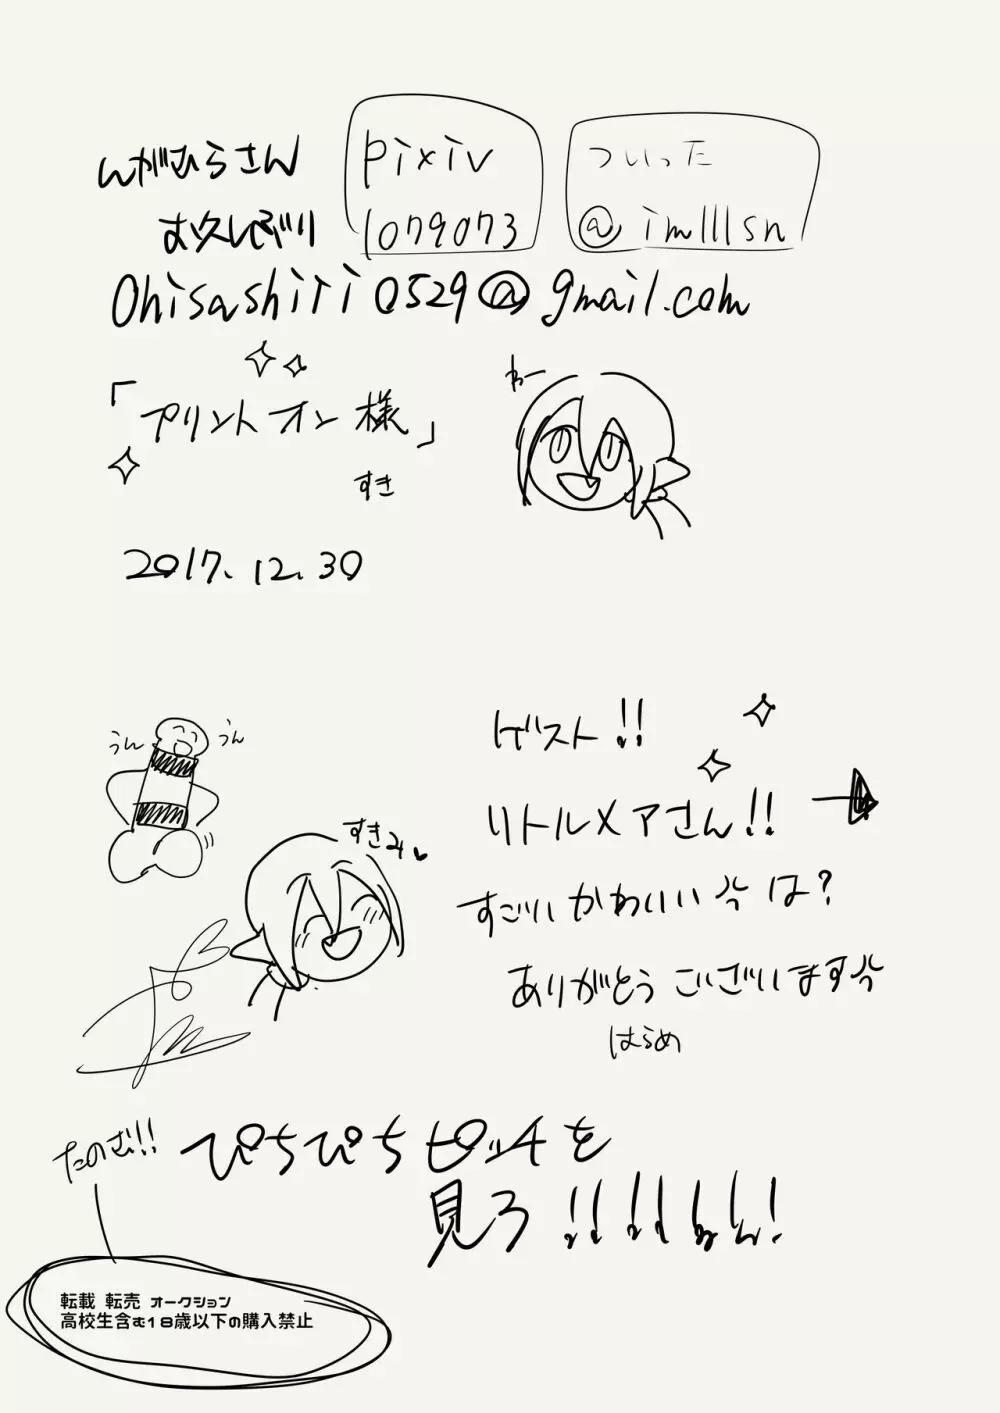 んがひらさん
お久しぶり
pixiv
1079073
ついった
@imlllsn
Ohisashiri0529@gmail.com
「プリントオン様」
すき
わー
2017.12.30
うん
うん
ゲスト!!
リトルメアさん!!
すきみ♥
すごいかわいい は?
ありがとうございます
はらめ
たのむ!!
ぴちぴちピッチを
見ろ!!!!!!!
転載 転売 オークション
高校生含む18歳以下の購入禁止